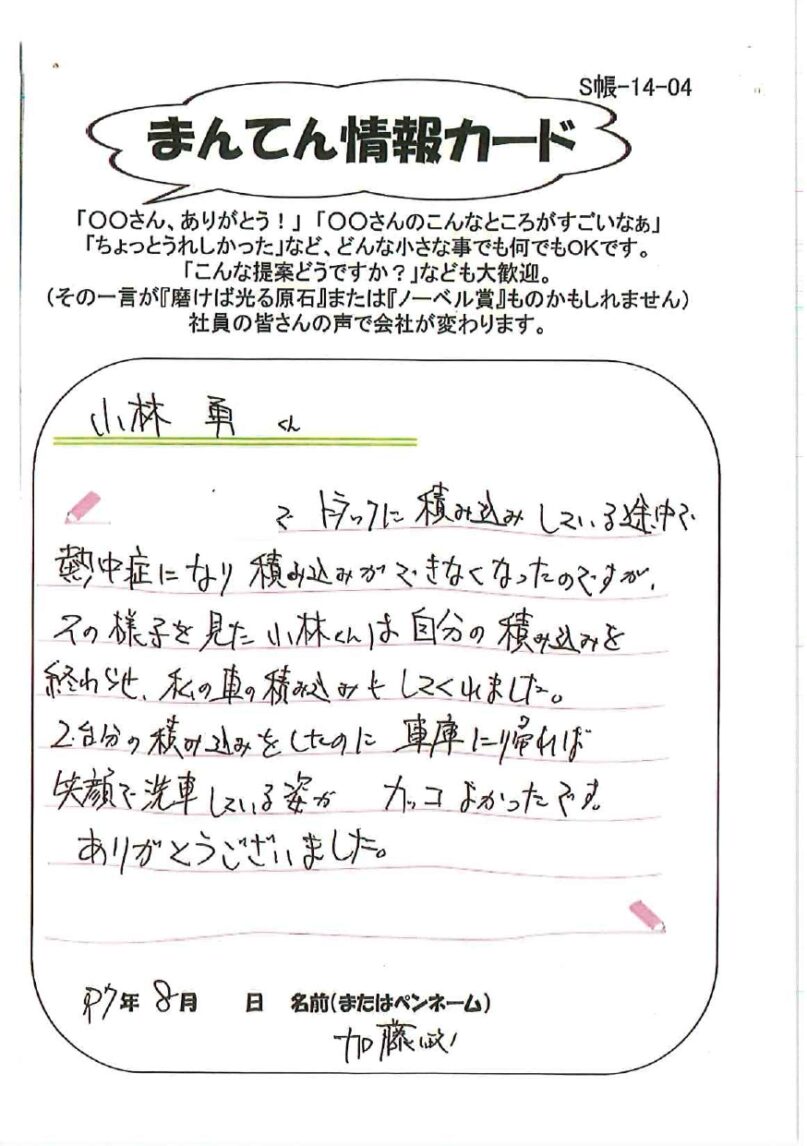 S帳-14-04
まんてん情報カード
「〇〇さん、ありがとう！」「〇〇さんのこんなところがすごいなぁ」
「ちょっとうれしかった」など、どんな小さな事でも何でもOKです。
「こんな提案どうですか？」なども大歓迎。
(その一言が『磨けば光る原石』または『ノーベル賞』ものかもしれません)
社員の皆さんの声で会社が変わります。
小林 勇 くん
で トラックに 積み込み している途中で
熱中症になり 積み込みができなくなったのですが、
その様子を見た小林くんは 自分の積み込みを
終わらせ、私の車の積み込みもしてくれました。
2台分の積み込みをしたのに 車庫に帰れば
笑顔で洗車している姿が カッコよかったです。
ありがとうございました。
R7年 8月 日 名前(またはペンネーム)
加藤